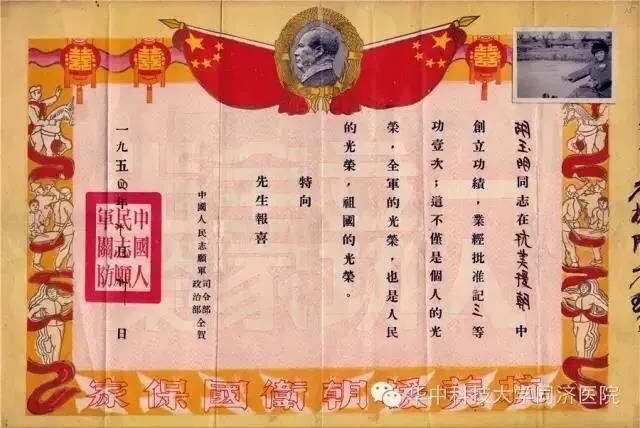 囍
囍
囍
囍
胡玉明同志在抗美援朝中
創立功績，業經批准記三等
功壹次；這不僅是個人的光
榮，全軍的光榮，也是人民
的光榮，祖國的光榮。
特向
先生報喜
中國人民志願軍
司令部
政治部
仝賀
一九五四年
日
中國人
民志願
軍關防
抗美援朝衛國保家
华中科技大学同济医院